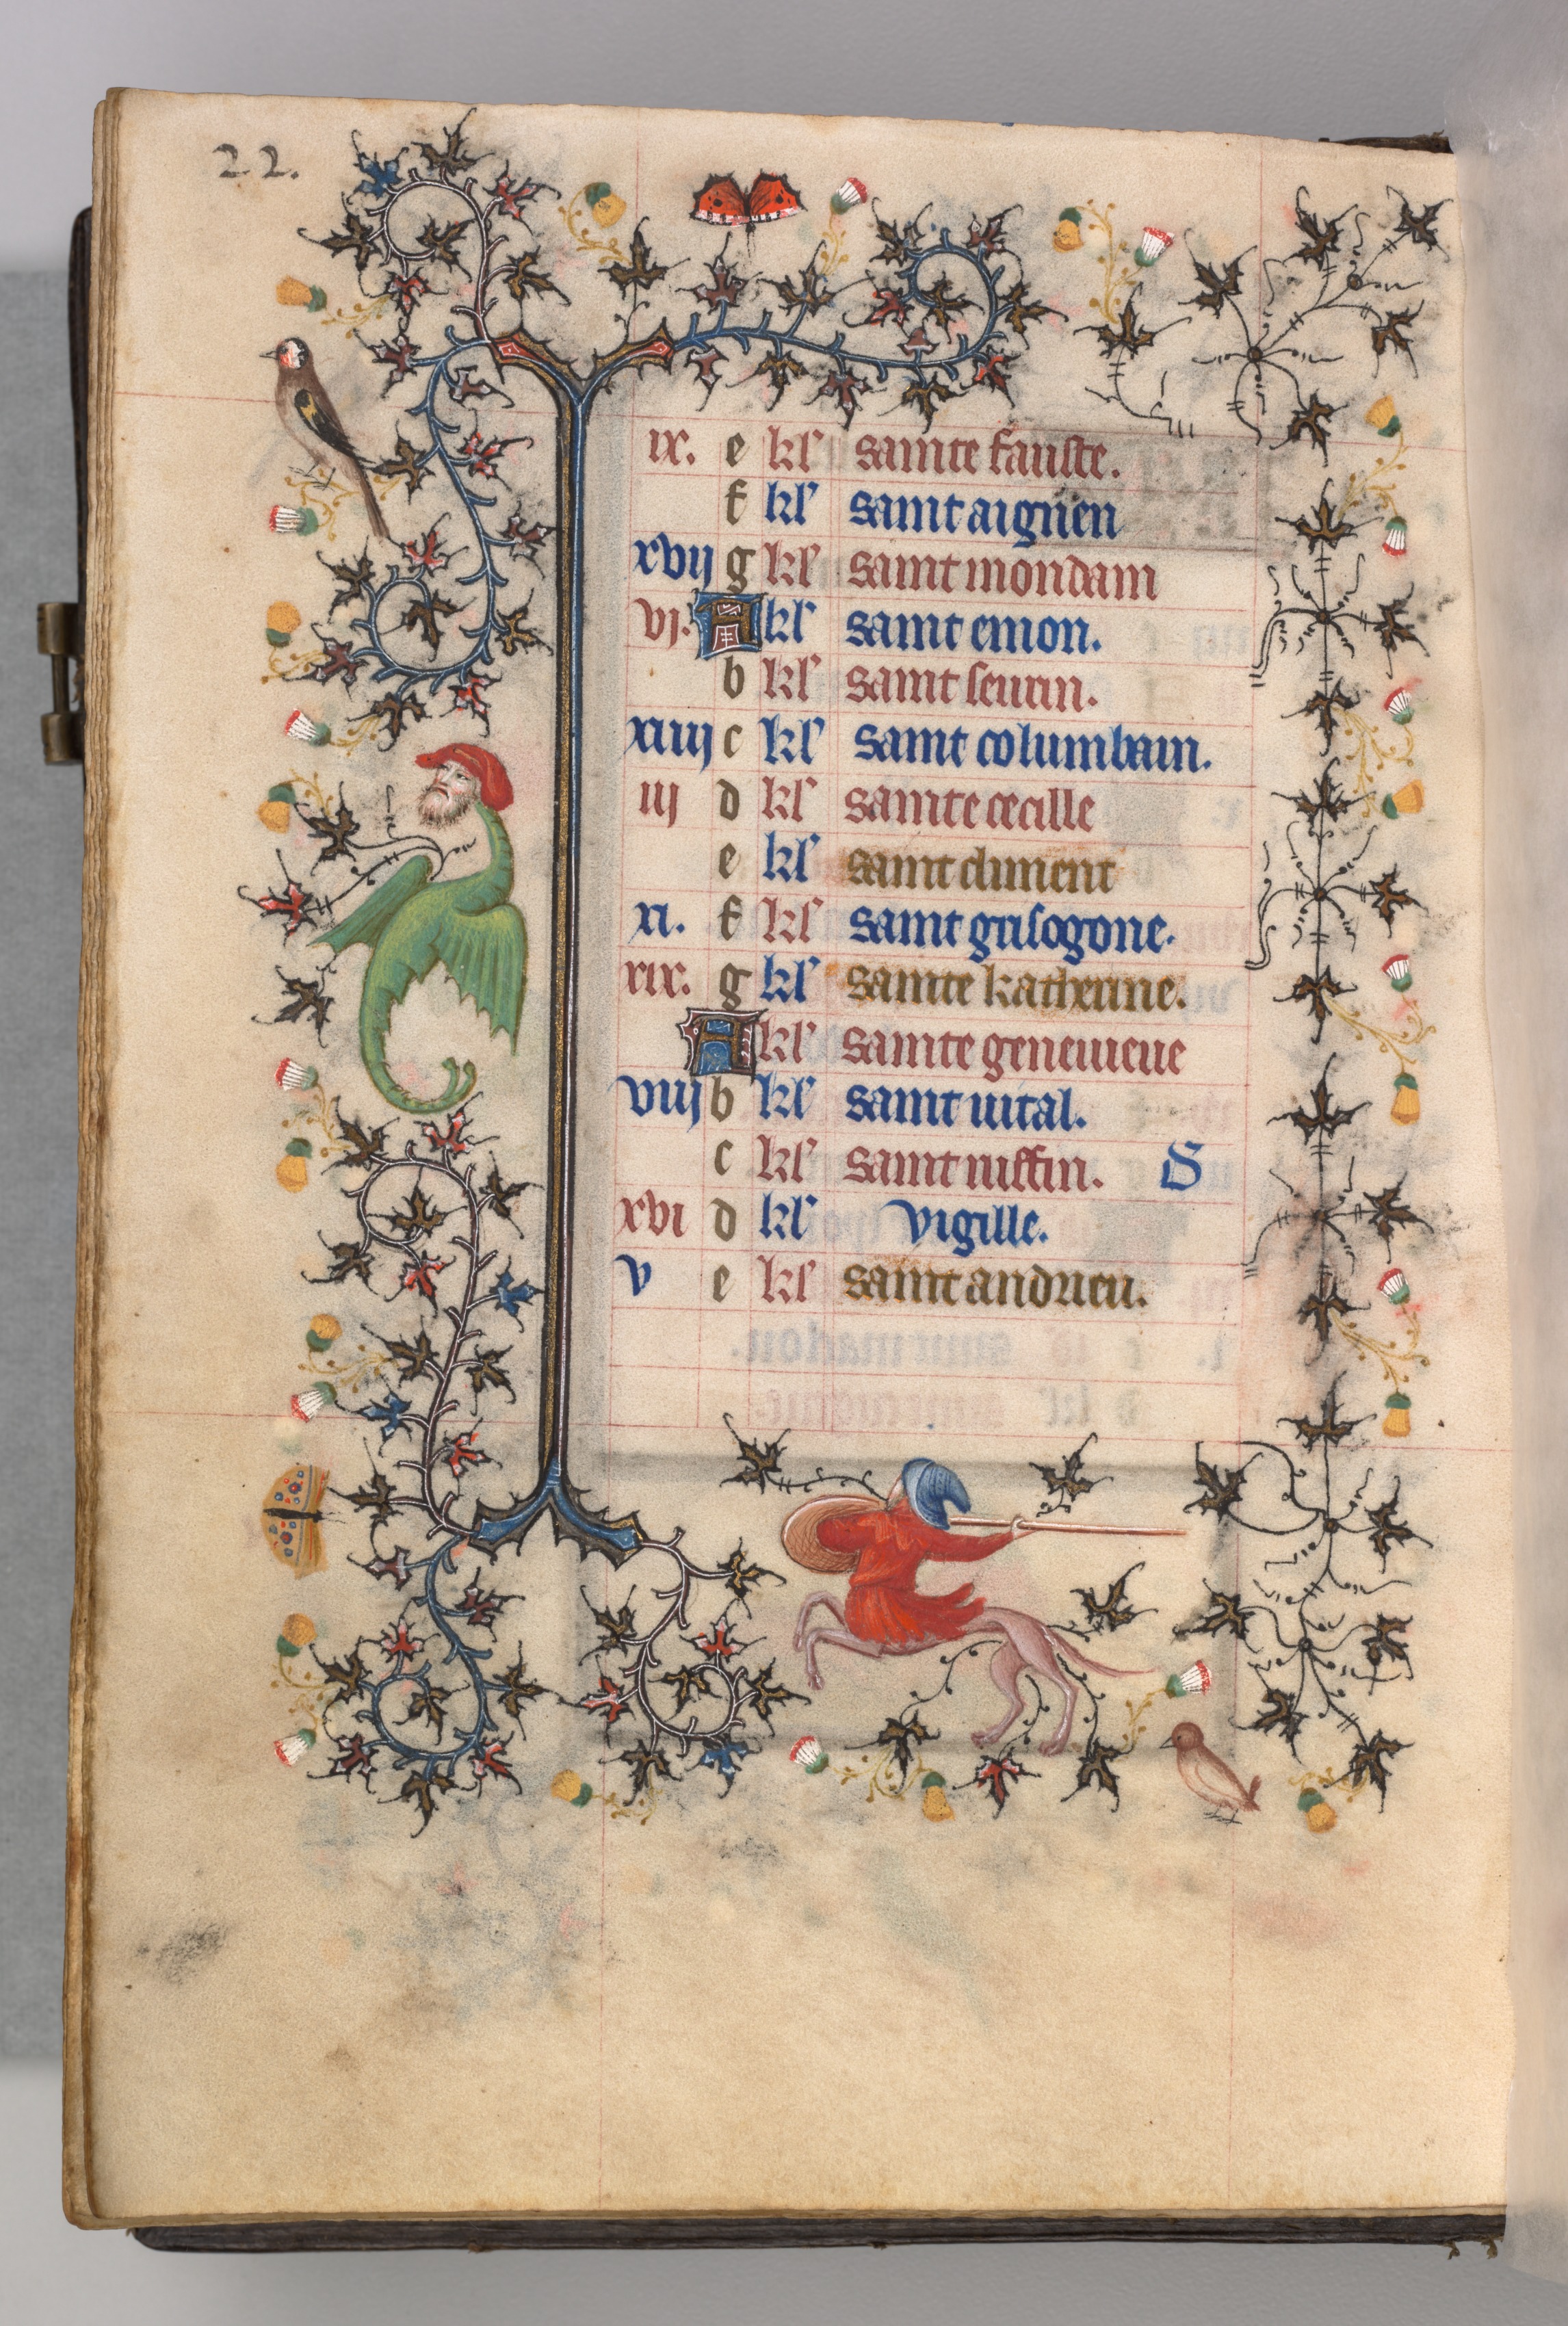 22.
ix. e kl' sainte fauste.
f kl' saint aignen
xvij g kl' saint mondain
vj. A kl' saint emon.
b kl' saint seurin.
xiiij c kl' saint columbain.
iij d kl' sainte cecille
e kl' saint climent
xi. f kl' saint grisogone.
xix. g kl' sainte katherine.
A kl' sainte genevieue
viij b kl' saint uital.
c kl' saint ruffin. S
xvi d kl' vigille.
v e kl' saint andrieu.